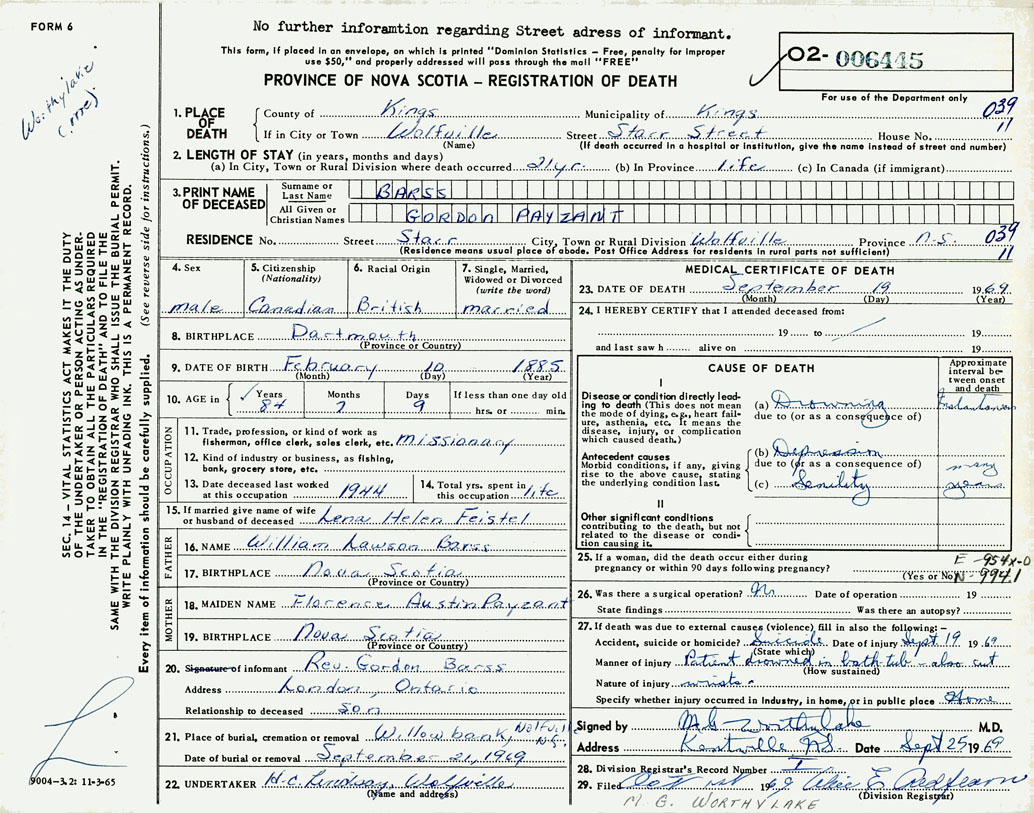 FORM 6
No further inforamtion regarding Street adress of informant.
This form, if placed in an envelope, on which is printed "Dominion Statistics – Free, penalty for improper
use $50," and properly addressed will pass through the mail "FREE"
PROVINCE OF NOVA SCOTIA – REGISTRATION OF DEATH
02- 006445
For use of the Department only
Worthylake
SEC. 14 – VITAL STATISTICS ACT MAKES IT THE DUTY
OF THE UNDERTAKER OR PERSON ACTING AS UNDER-
TAKER TO OBTAIN ALL THE PARTICULARS REQUIRED
IN THE "REGISTRATION OF DEATH" AND TO FILE THE
SAME WITH THE DIVISION REGISTRAR WHO SHALL ISSUE THE BURIAL PERMIT.
WRITE PLAINLY WITH UNFADING INK. THIS IS A PERMANENT RECORD.
Every item of information should be carefully supplied. (See reverse side for instructions.)
9004-3.2: 11-3-65
1. PLACE OF DEATH
County of Kings Municipality of Kings 039
If in City or Town Wolfville Street Starr Street House No. 11
(Name) (If death occurred in a hospital or institution, give the name instead of street and number)
2. LENGTH OF STAY (in years, months and days)
(a) In City, Town or Rural Division where death occurred 21 yr. (b) In Province life (c) In Canada (if immigrant)
3. PRINT NAME OF DECEASED
Surname or Last Name BARSS
All Given or Christian Names GORDON PAYZANT
RESIDENCE No. Street Starr City, Town or Rural Division Wolfville Province N.S. 039
(Residence means usual place of abode. Post Office Address for residents in rural parts not sufficient) 11
4. Sex male
5. Citizenship (Nationality) Canadian
6. Racial Origin British
7. Single, Married, Widowed or Divorced (write the word) married
8. BIRTHPLACE Dartmouth
(Province or Country)
9. DATE OF BIRTH February 10 1885
(Month) (Day) (Year)
10. AGE in Years 84 Months 7 Days 9 If less than one day old hrs. or min.
OCCUPATION
11. Trade, profession, or kind of work as
fisherman, office clerk, sales clerk, etc. missionary
12. Kind of industry or business, as fishing,
bank, grocery store, etc.
13. Date deceased last worked at this occupation 1944
14. Total yrs. spent in this occupation life
15. If married give name of wife
or husband of deceased Lena Helen Feistel
FATHER
16. NAME William Lawson Barss
17. BIRTHPLACE Nova Scotia
(Province or Country)
MOTHER
18. MAIDEN NAME Florence Austin Payzant
19. BIRTHPLACE Nova Scotia
(Province or Country)
20. Signature of informant Rev. Gordon Barss
Address London, Ontario
Relationship to deceased son
21. Place of burial, cremation or removal Willowbank, Wolfville N.S.
Date of burial or removal September 21, 1969
22. UNDERTAKER H.C. Lindsay, Wolfville
(Name and address)
MEDICAL CERTIFICATE OF DEATH
23. DATE OF DEATH September 19 1969
(Month) (Day) (Year)
24. I HEREBY CERTIFY that I attended deceased from:
19 to 19
and last saw h alive on 19
CAUSE OF DEATH
Approximate interval between onset and death
I
Disease or condition directly lead-
ing to death (This does not mean
the mode of dying, e.g., heart fail-
ure, asthenia, etc. It means the
disease, injury, or complication
which caused death.)
(a) Drowning
due to (or as a consequence of)
Antecedent causes
Morbid conditions, if any, giving
rise to the above cause, stating
the underlying condition last.
(b) Depression
due to (or as a consequence of)
(c) Senility
many
years
II
Other significant conditions
contributing to the death, but not
related to the disease or condi-
tion causing it.
25. If a woman, did the death occur either during
pregnancy or within 90 days following pregnancy?
(Yes or No)
E-954X-0
N-9941
26. Was there a surgical operation? No Date of operation 19
State findings Was there an autopsy?
27. If death was due to external causes (violence) fill in also the following:–
Accident, suicide or homicide? Suicide Date of injury Sept 19 1969
(State which)
Manner of injury Patient drowned in bath tub – also cut
(How sustained)
Nature of injury wrists.
Specify whether injury occurred in Industry, in home, or in public place Home
Signed by M G Worthylake M.D.
Address Kentville N.S. Date Sept 25 1969
28. Division Registrar's Record Number
29. Filed Oct 1st 1969
(Division Registrar)
M. G. WORTHYLAKE